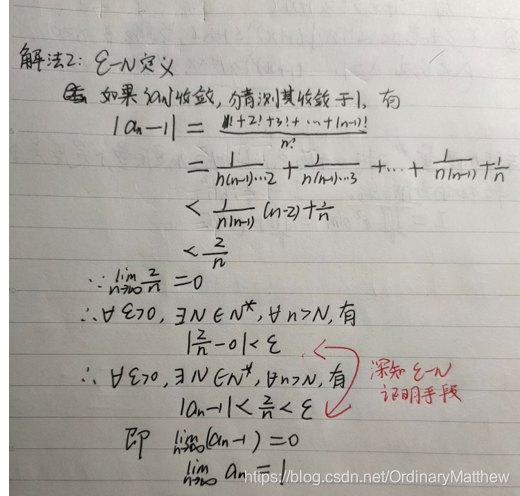 解法2: ε-N定义
如果{an}收敛,猜测其收敛于1,有
|an-1| = (1!+2!+3!+…+(n-1)!)/n!
= 1/(n(n-1)…2) + 1/(n(n-1)…3) +…+ 1/(n(n-1)) + 1/n
< 1/(n(n-1)) (n-2) + 1/n
< 2/n
∵ lim n→∞ 2/n = 0
∴ ∀ε>0, ∃N∈N*, ∀n>N, 有
|2/n - 0| < ε
∴ ∀ε>0, ∃N∈N*, ∀n>N, 有
|an-1| < 2/n < ε
深知ε-N
证明手段
即 lim n→∞ (an-1) = 0
lim n→∞ an = 1
https://blog.csdn.net/OrdinaryMatthew